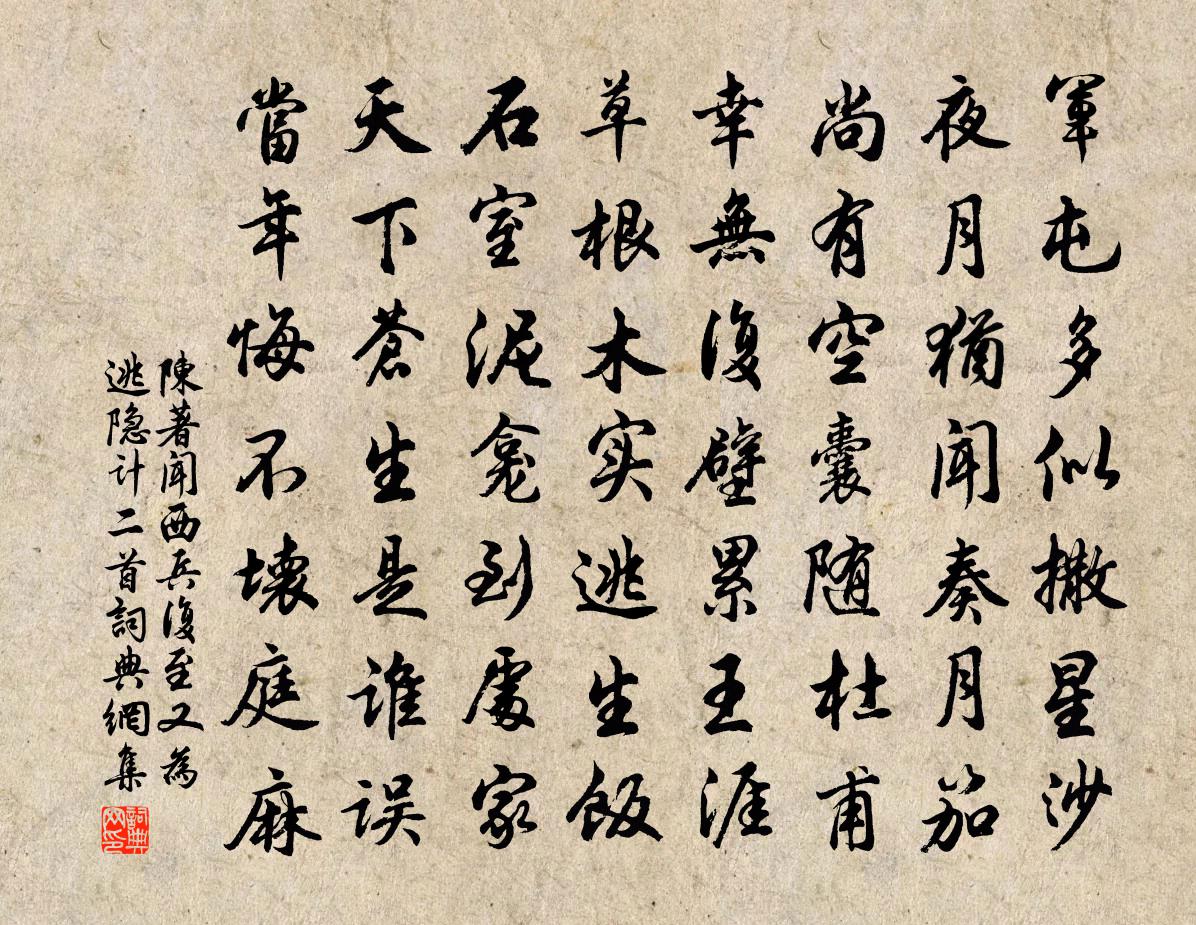 軍屯多似撒星沙
夜月猶聞奏月笳
尚有空囊随杜甫
幸無復壁累王涯
草根木实逃生飯
石室泥龛到處家
天下蒼生是谁误
當年悔不壞庭麻
陳著聞西兵復至又為
逃隐计二首詞典網集
詞典网印